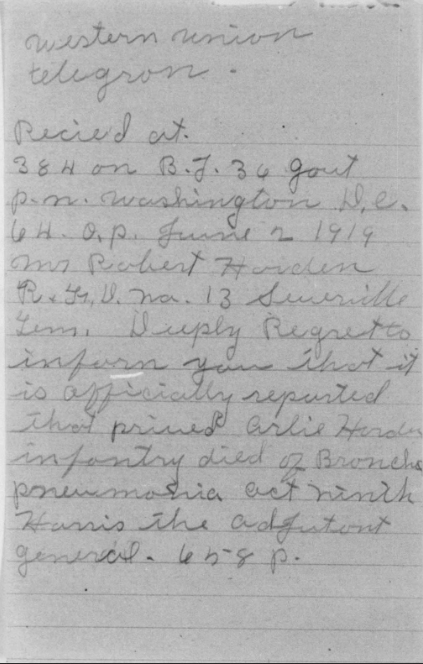 western union
telegron.
Recied at.
384 on B.J. 36 gout
p.n. washington D.C.
64. a.p. June 2 1919
mr Robert Harden
R.Fr.D. no. 13 Sevierville
Tenn. Deeply Regret to
inforn you that it
is officially reported
that prived Arlie Harden
infantry died of Broncho
pneumonia oct ninth
Harris the adjutont
general. 658 p.